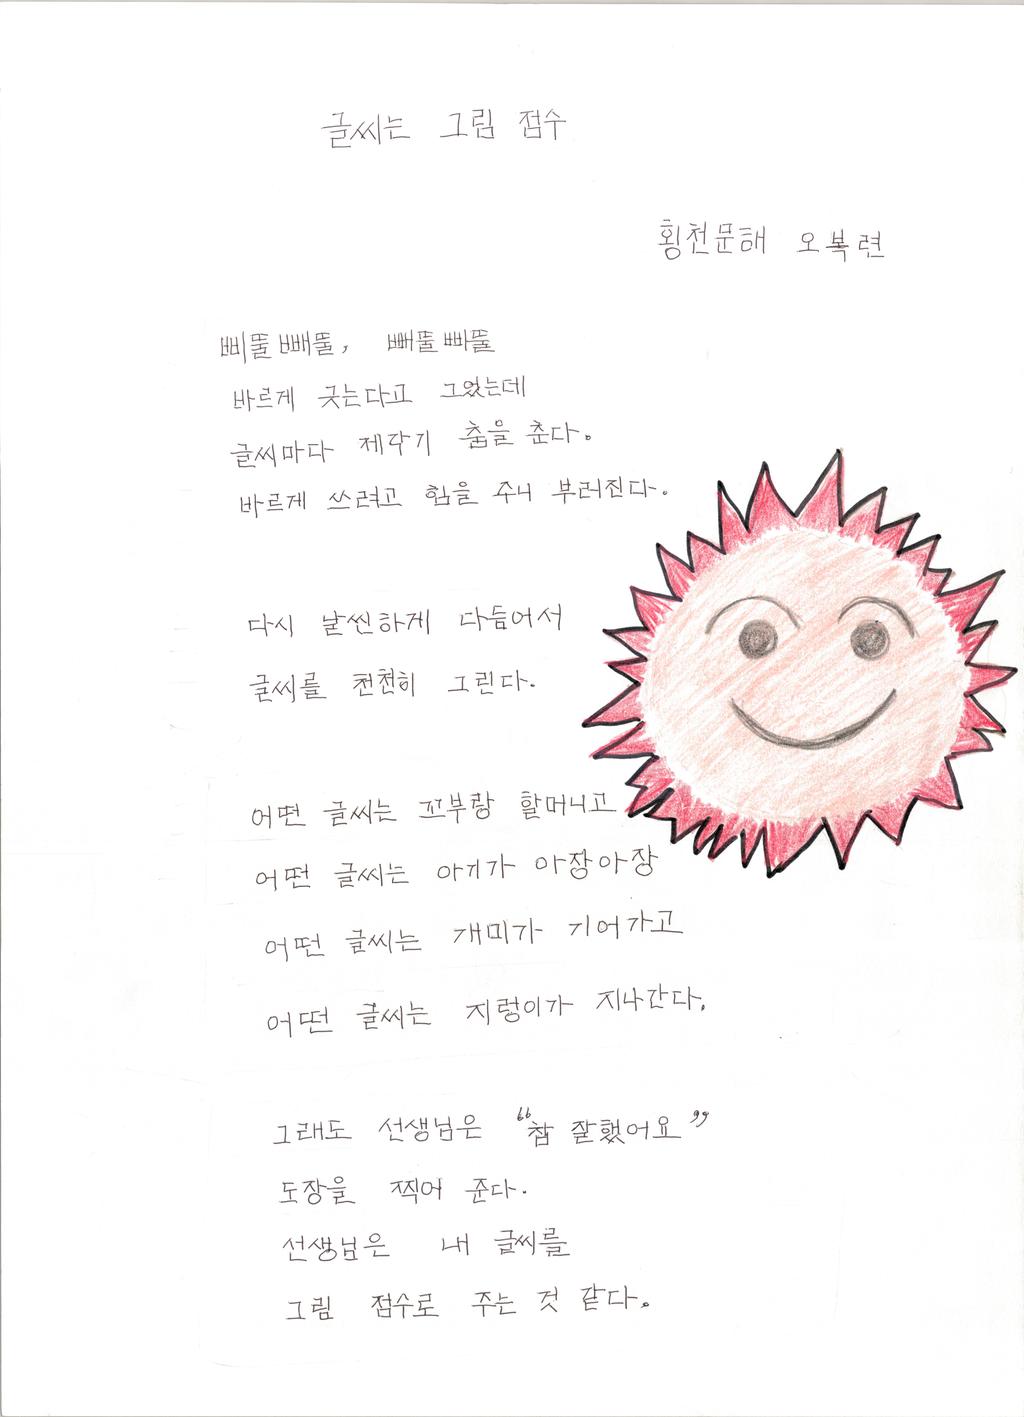 글씨는 그림 점수
횡천문해 오복련
삐뚤빼뚤, 빼뚤삐뚤
바르게 긋는다고 그었는데
글씨마다 제각기 춤을 춘다.
바르게 쓰려고 힘을 주니 부러진다.
다시 날씬하게 다듬어서
글씨를 천천히 그린다.
어떤 글씨는 꼬부랑 할머니고
어떤 글씨는 아기가 아장아장
어떤 글씨는 개미가 기어가고
어떤 글씨는 지렁이가 지나간다.
그래도 선생님은 “참 잘했어요”
도장을 찍어 준다.
선생님은 내 글씨를
그림 점수로 주는 것 같다.